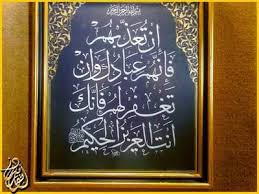 بسم الله الرحمن الرحيم
ان تعذبهم
فانهم عبادك وان
تغفر لهم فانك
انت العزيز الحكيم